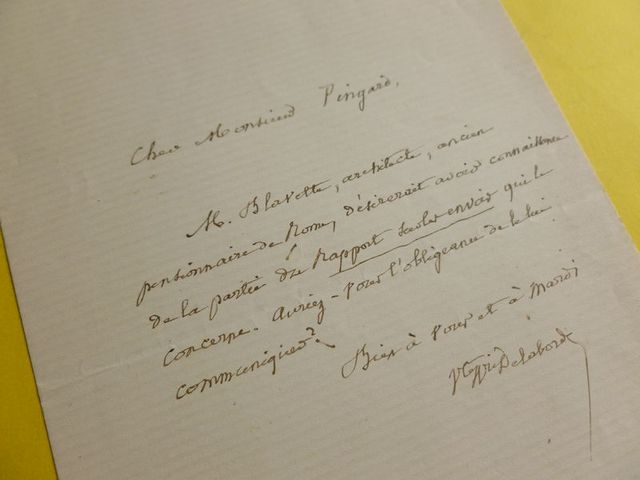 Cher Monsieur Pingard,
M. Blavette, architecte, ancien
pensionnaire de Rome, désirerait avoir connaissance
de la partie du Rapport sur les envois qui le
concerne. Auriez-vous l'obligeance de la lui
communiquer?
Bien à vous et à Mardi
H. Delaborde